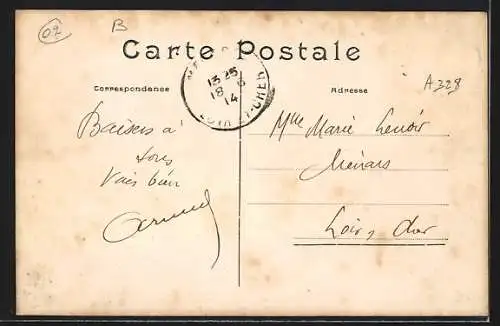 02
B
Carte Postale
Correspondance
Adresse
A328
13 25
18 6
14
LOIR ET CHER
Baisers a'
tous
Vais bien
Armand
Mlle Marie Lenoir
Ménars
Loir & Cher